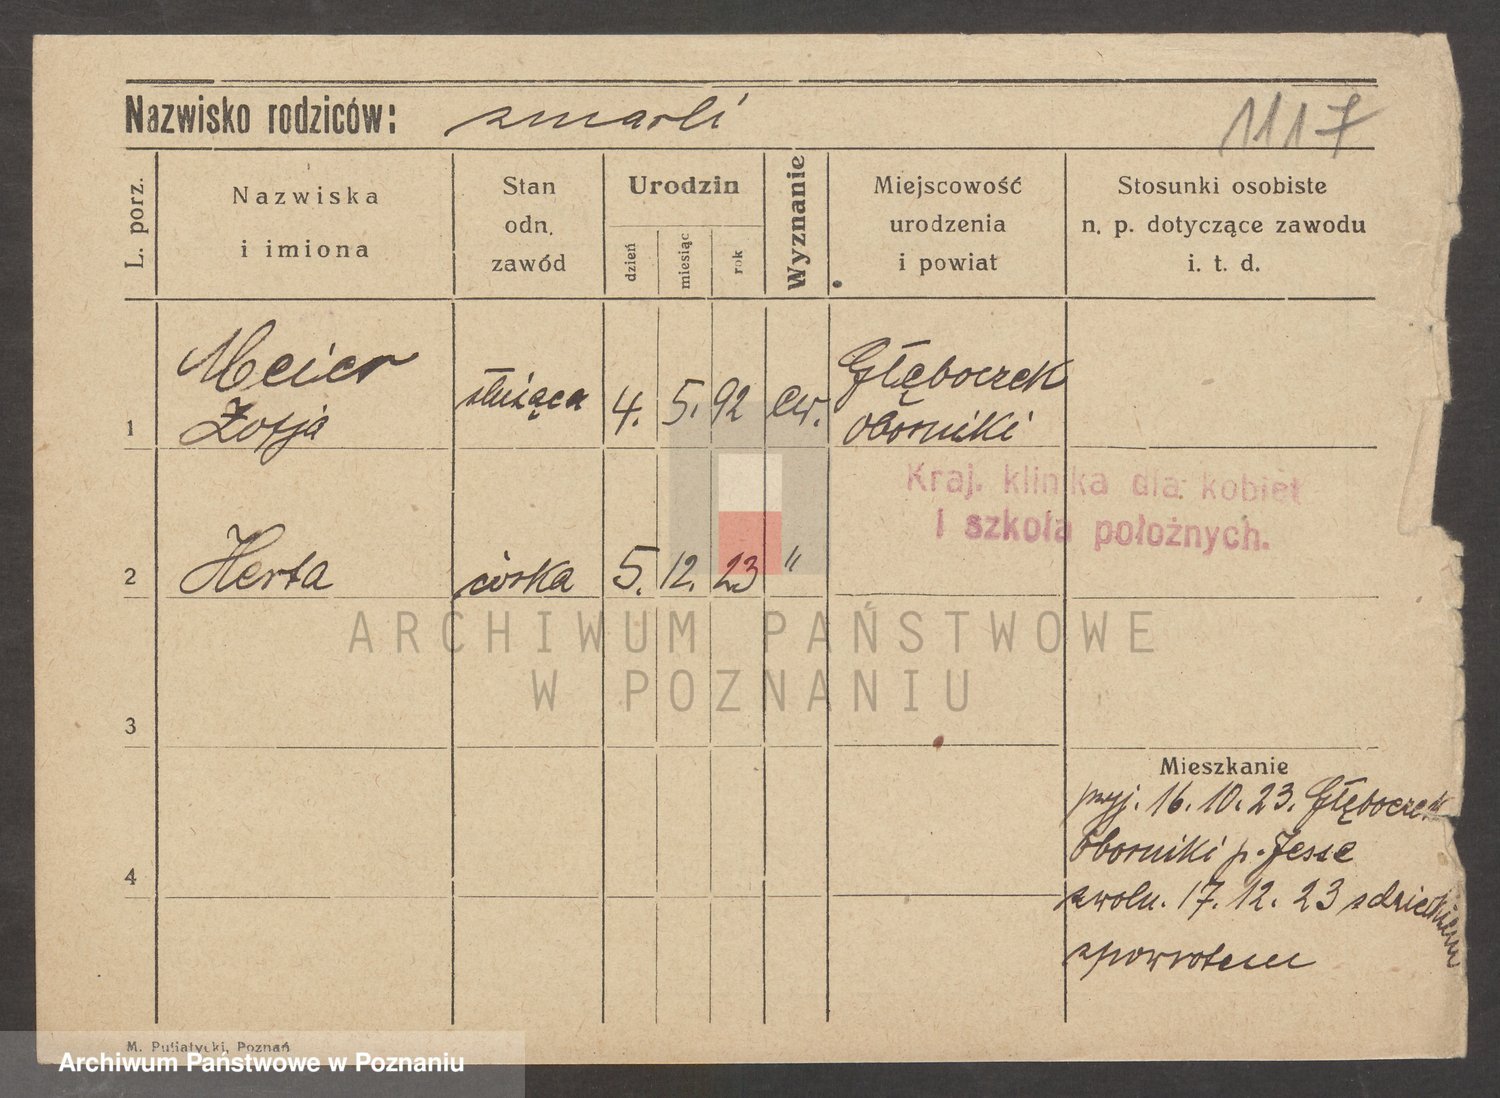 Nazwisko rodziców: zmarli
1117
L. porz.
Nazwiska
i imiona
Stan
odn.
zawód
Urodzin
dzień
miesiąc
rok
Wyznanie
Miejscowość
urodzenia
i powiat
Stosunki osobiste
n. p. dotyczące zawodu
i. t. d.
1
Meier
Zofja
służąca
4. 5. 92
ew.
Głęboczek
Oborniki
Kraj. klinika dla kobiet
i szkoła położnych.
2
Herta
córka
5. 12. 23
"
ARCHIWUM PAŃSTWOWE
W POZNANIU
3
Mieszkanie
przyj. 16. 10. 23. Głęboczek
Oborniki p. Jesse
zwoln. 17. 12. 23 z dzieckiem
zpowrotem
4
M. Putiatycki, Poznań
Archiwum Państwowe w Poznaniu